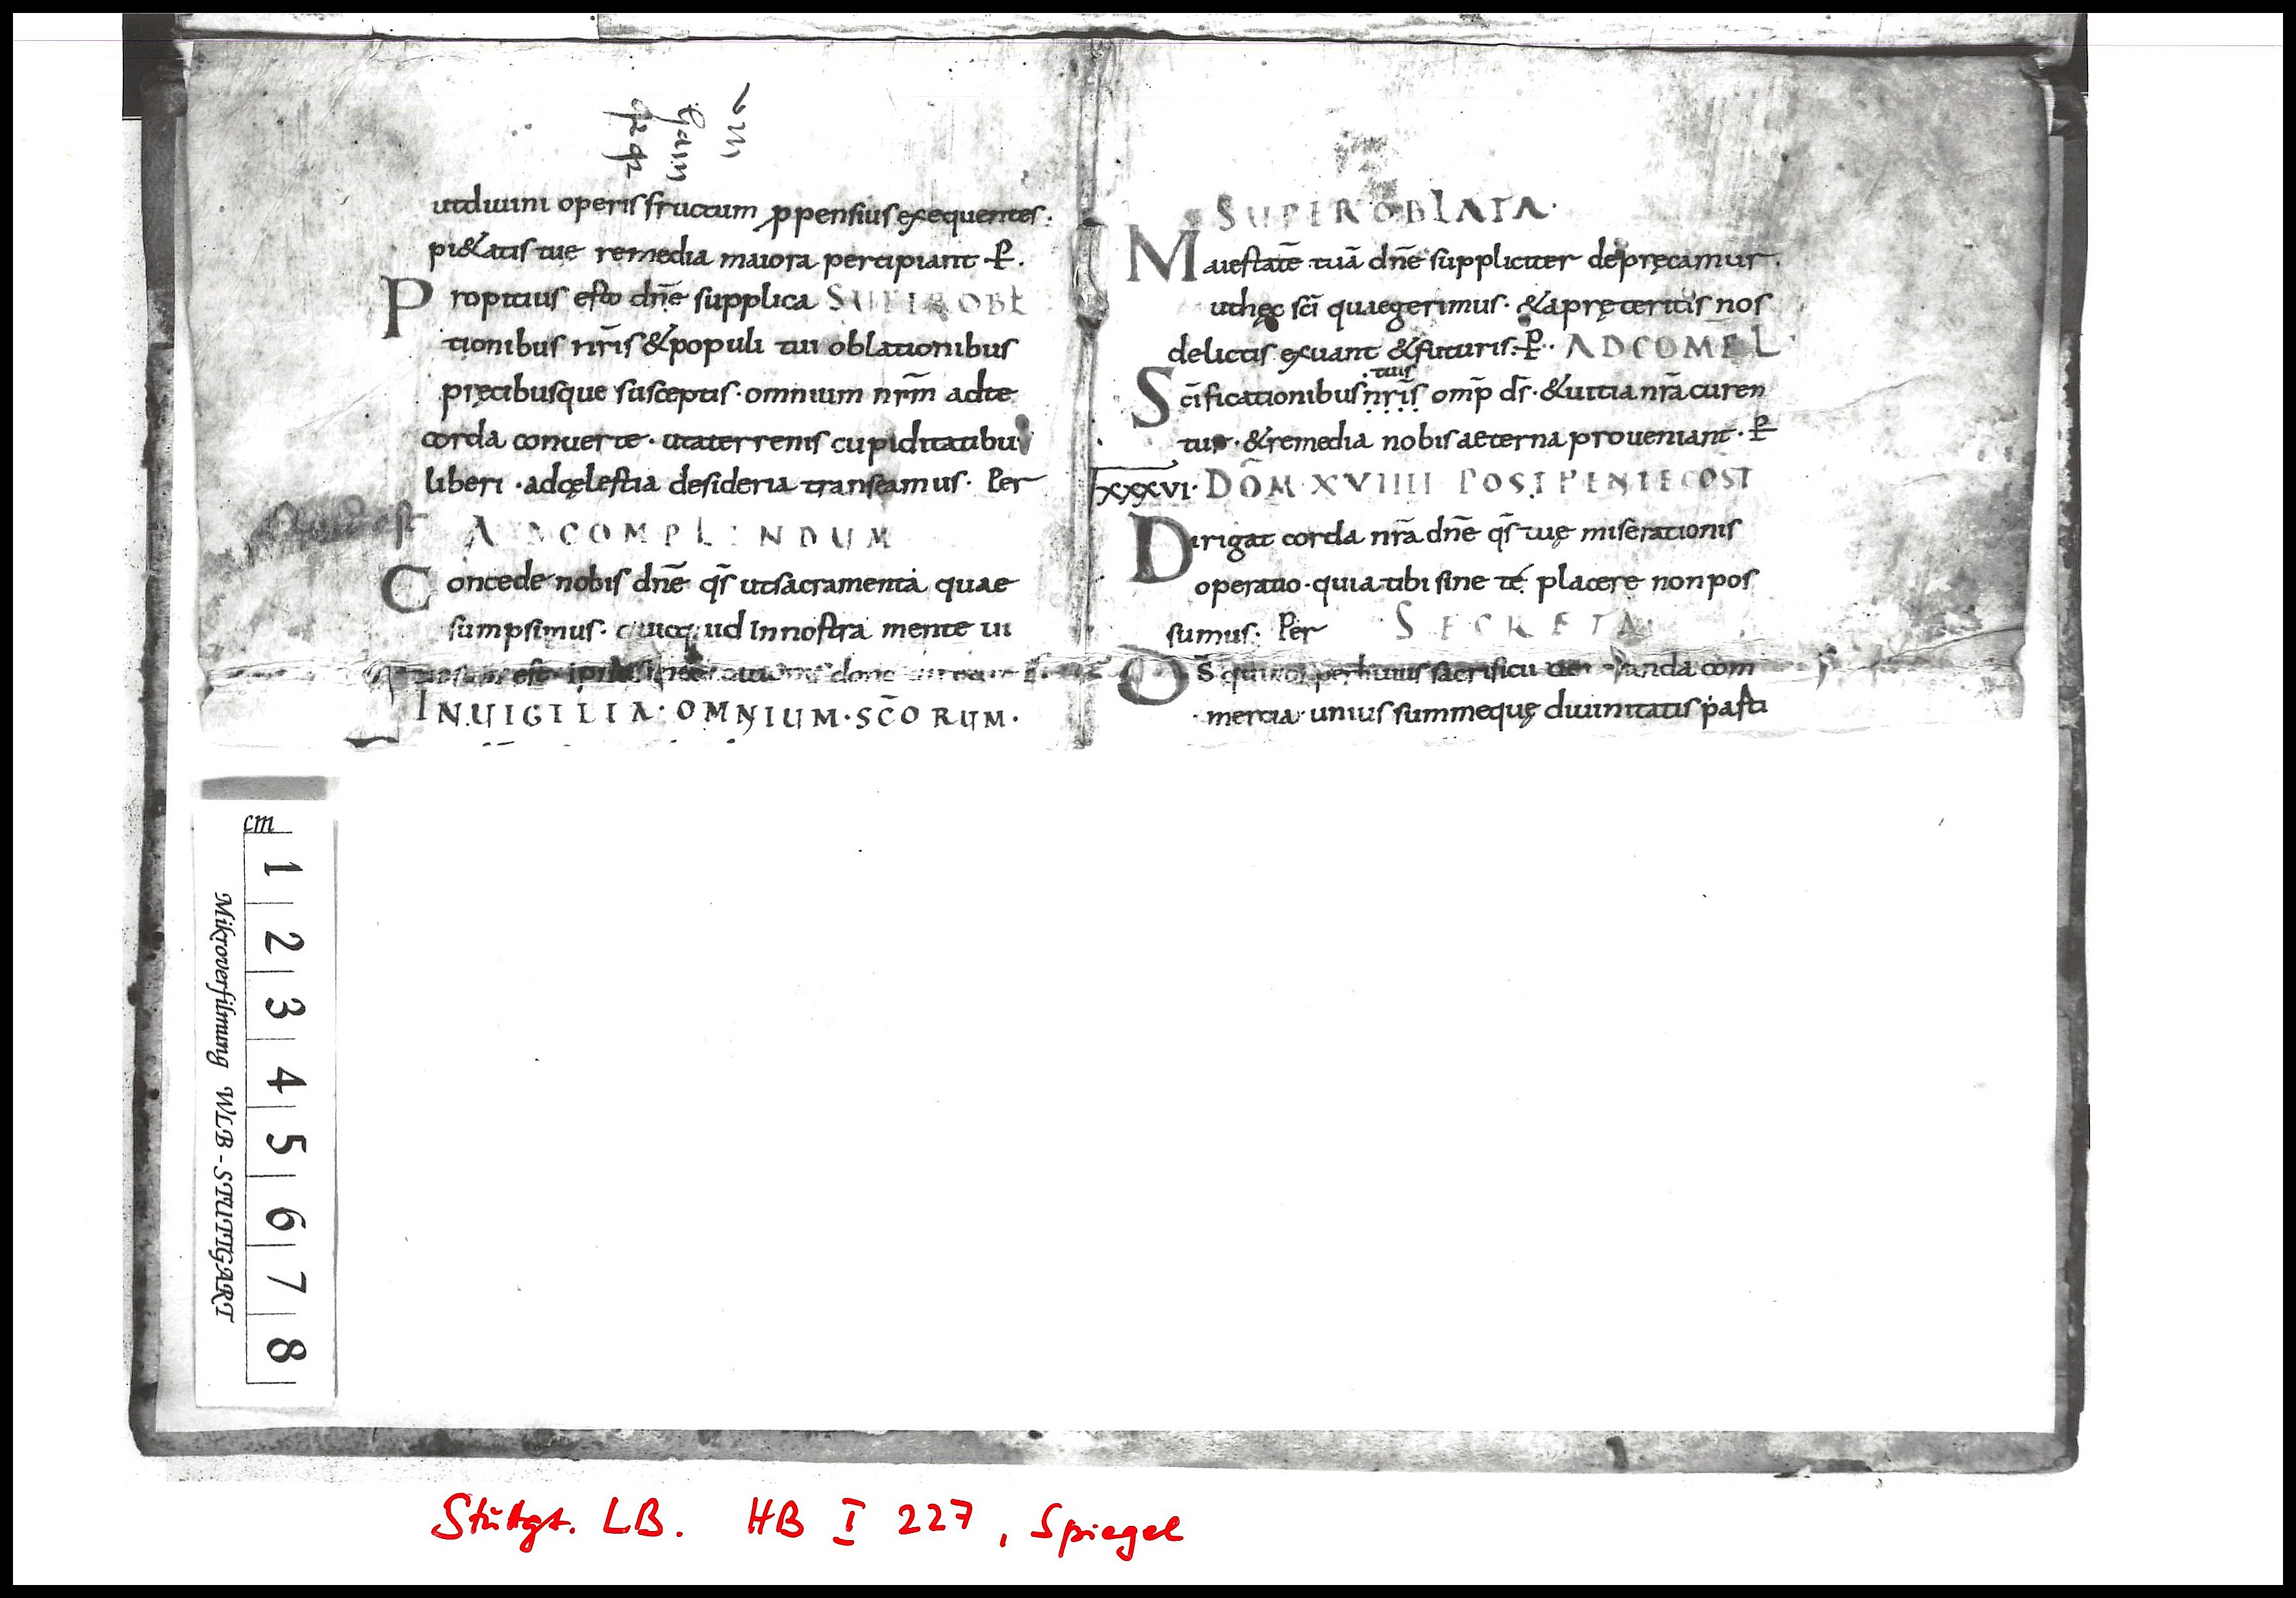 utdiuini operis fructum ꝓpensius exequentes·
pi&atis tuę remedia maiora percipiant P̶.
Propitius esto dn̄e supplica SUPER OBL
tionibus nr̄is &populi tui oblationibus
pręcibusque susceptis· omnium nr̄m adte
corda conuerte· utaterrenis cupiditatibus
liberi· adcęlestia desideria transeamus· Per
ADCOMPLENDUM
Concede nobis dn̄e qs̄ utsacramenta quae
sumpsimus· quicquid Innostra mente ui
est· dono
INUIGILIA· OMNIUM· SC̄ORUM·
SUPER OBLATA·
Maiestatē tuā dn̄e suppliciter depręcamur·
uthęc sc̄i quaegerimus· &apręteritis nos
delictis exuant &futuris· P̶· ADCOMPL
tuis
Sc̄ificationibus nr̄is omp̄ ds̄· &uitia nr̄a curen
tur· &remedia nobis aeterna proueniant· P̶
lxxxvi· DOM̄ XVIIII POST PENTECOST
Dirigat corda nr̄a dn̄e qs̄ tuę miserationis
operatio· quia tibi sine te placere non pos
sumus· Per SECRETA
Ds̄ qui nos perhuius sacrificii uen anda com
mercia· unius summequę diuinitatis parti
cm
1 2 3 4 5 6 7 8
Mikroverfilmung WLB - STUTTGART
Stuttgt. LB. HB I 227, Spiegel